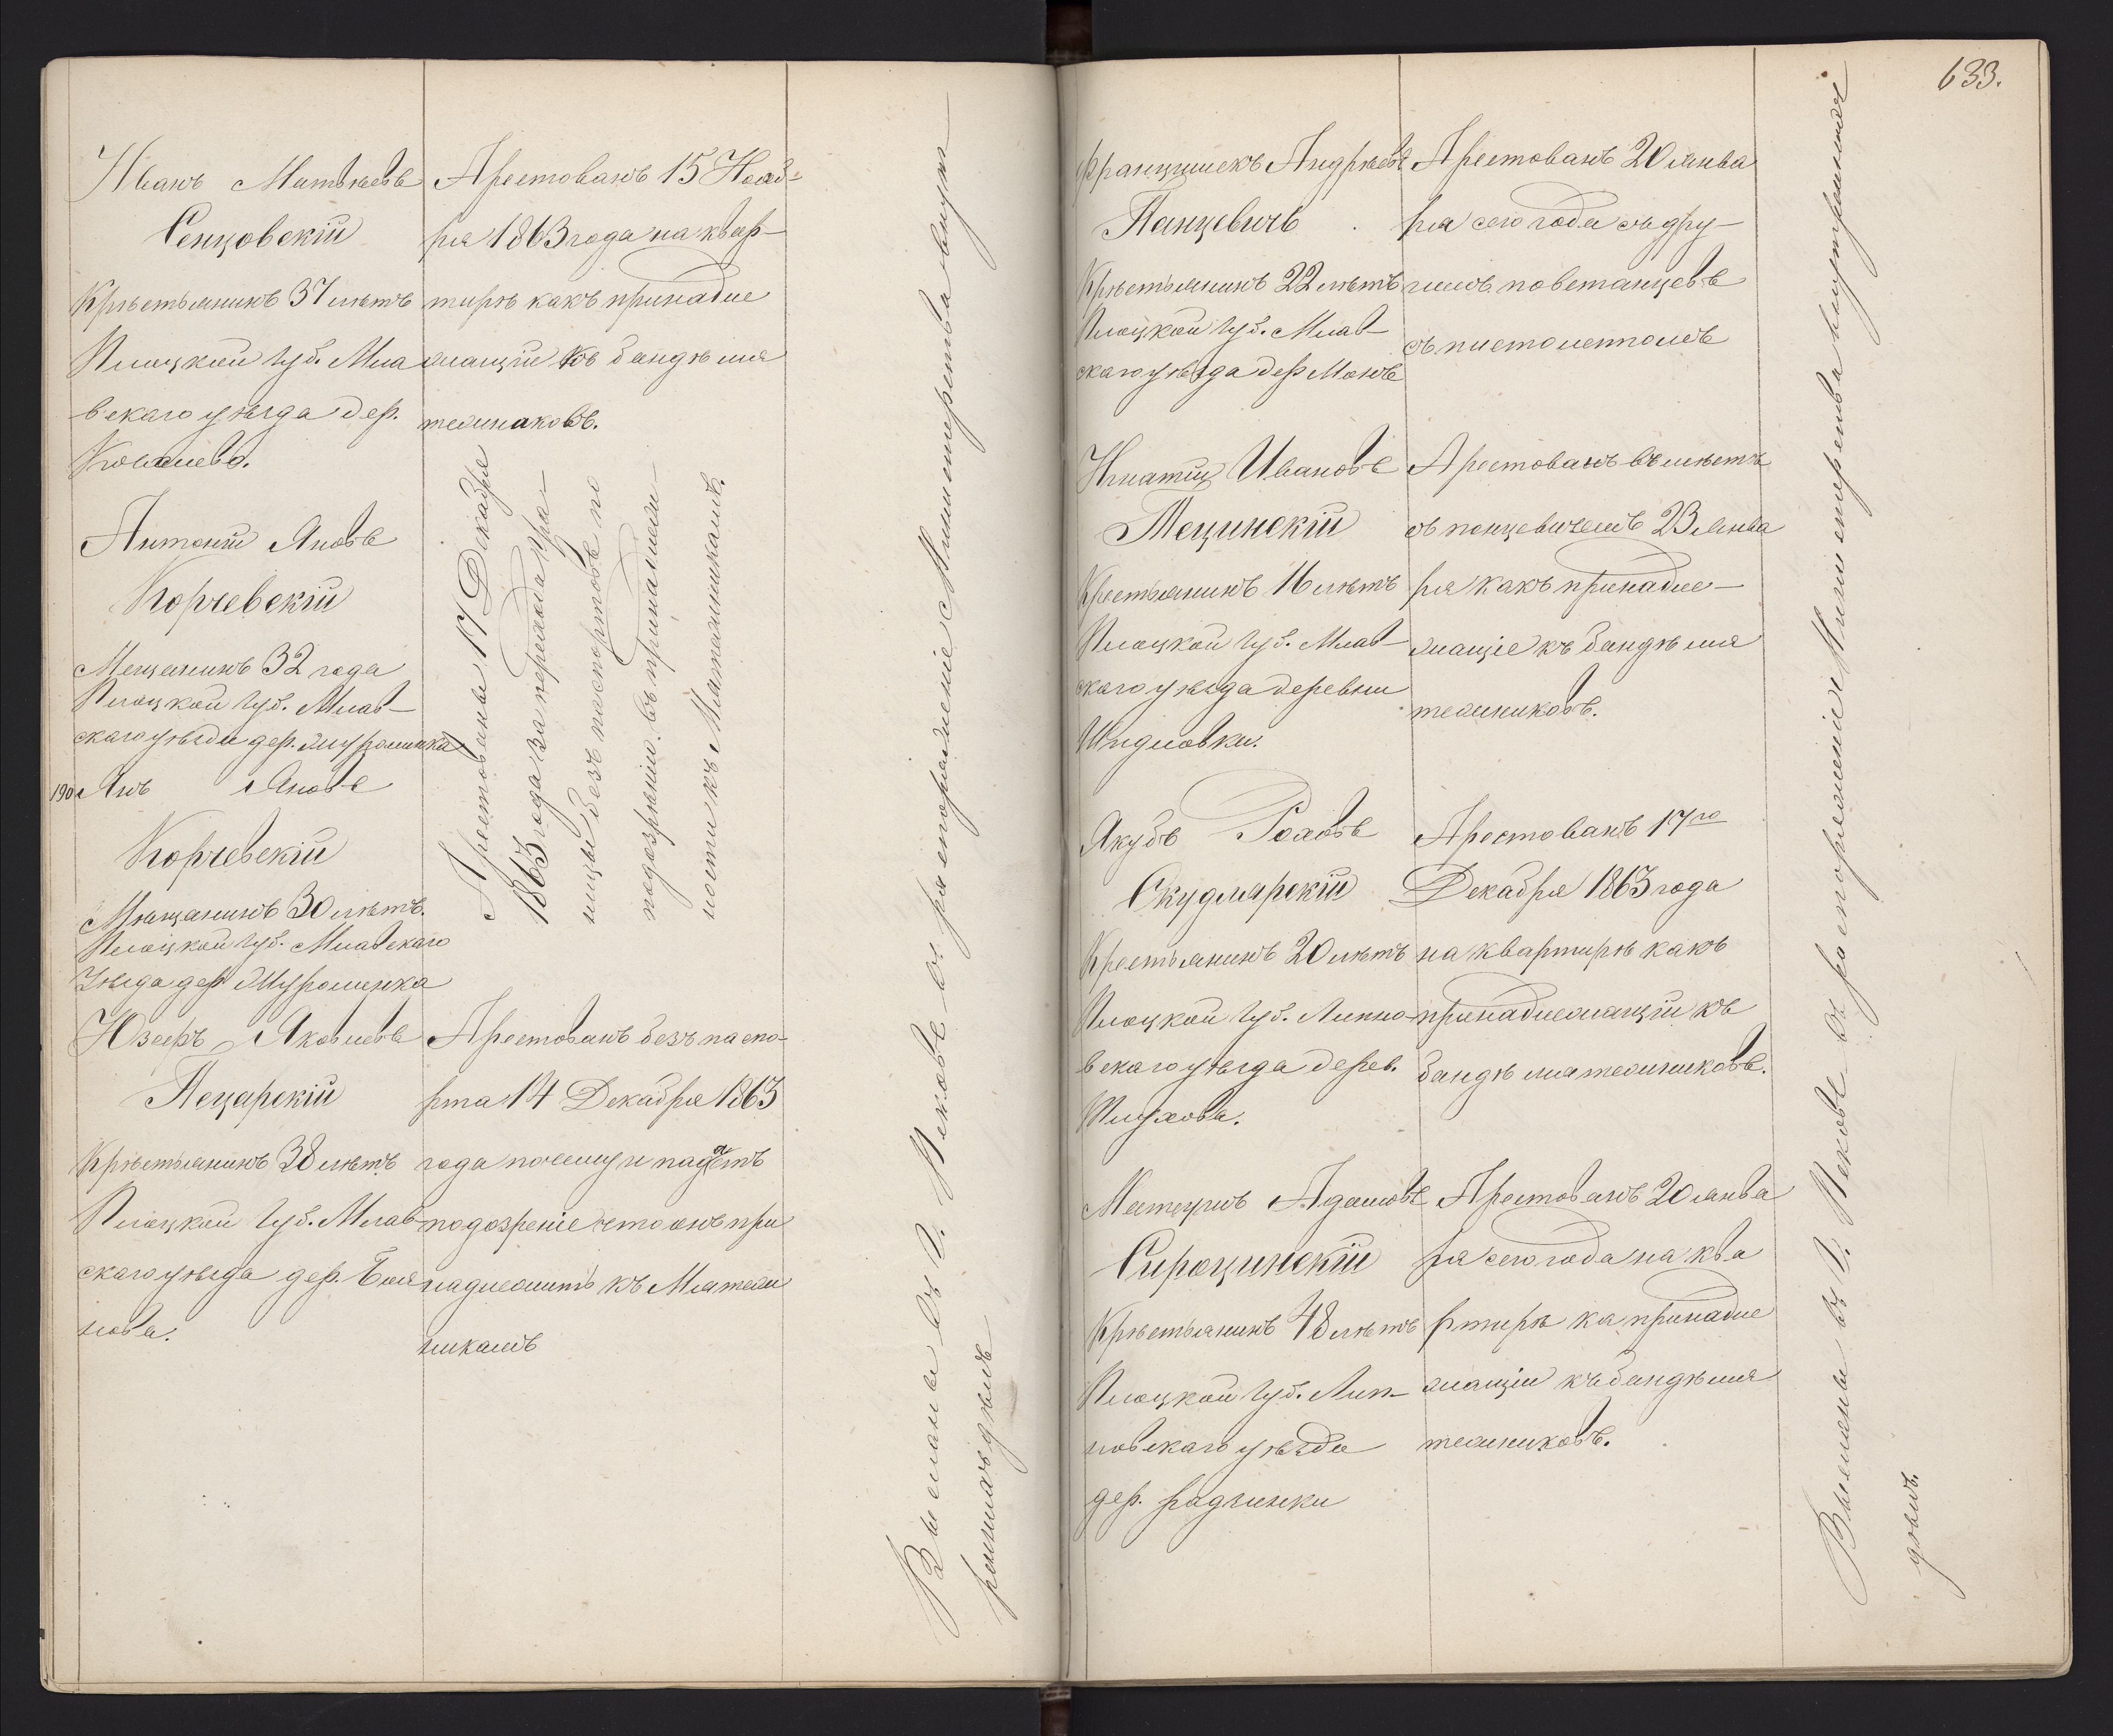 Иванъ Матвѣевъ
Сенцовскій
Крѣстьянинъ 37 лѣтъ
Плоцкой Губ. Мла
вскаго уѣзда дер.
Арестованъ 15 Нояб-
ря 1863 года на квар-
тирѣ какъ принадле
жащій къ бандѣ мя
тежнаковъ.
Антоній Яновъ
Корчевскій
Мещанинъ 32 года
Плоцкой Губ. Млав-
скаго уѣзда дер.
190 Янъ Яновъ
Корчевскій
Мѣщанинъ 30 лѣтъ.
Плоцкой Губ. Млавскаго
Уѣзда дер
Арестованы 17 Декабря
1863 года за переходъ гра-
ницы безъ паспортовъ по
подозрѣнію въ принадлеж-
ности къ Мятежникамъ.
Юзефъ Яковлевъ
Пецарскій
Крѣстьянинъ 38 лѣтъ
Плоцкой Губ. Млав-
скаго уѣзда дер.
нова.
Арестованъ безъ паспо-
рта 14 Декабря 1863
года почему и падаетъ
подозреніе что онъ при
надлежитъ къ Мятеж
никамъ
Высланы въ Г. Псковъ въ распоряженіе Министерства внут
реннихъ дѣлъ
633.
Францишекъ Андрѣевъ
Панцевичъ
Крѣстьянинъ 22 лѣтъ
Плоцкой Губ. Млав-
скаго уѣзда дер
Арестованъ 20 Янва
ря сего года съ дру-
гимъ повстанцевъ
съ пистолетомъ
Игнатій Ивановъ
Мецинскій
Крестьянинъ 16 лѣтъ
Плоцкой Губ. Млав-
скаго уѣзда деревни
Шидловки.
Арестованъ вмѣстѣ
съ панцевичемъ 23 Янва
ря какъ принадле-
жащіе къ бандѣ мя
тежниковъ.
Якубъ Роховъ
Скудлярскій
Крестьянинъ 20 лѣтъ
Плоцкой Губ. Липно-
вскаго уѣзда дерев.
Арестованъ 17го
Декабря 1863 года
на квартирѣ какъ
принадлежащій къ
бандѣ мятежниковъ.
Матеушъ Адамовъ
Сироцинскій
Крѣстьянинъ 48 лѣтъ
Плоцкой Губ. Лип-
новскаго уѣзда
дер.
Арестованъ 20 Янва
ря сего года на ква
ртирѣ ка принадле
жащіи къ бандѣ мя
тежниковъ.
Высланы въ Г. Псковъ въ распоряженіе Министерства внутреннихъ
дѣлъ.